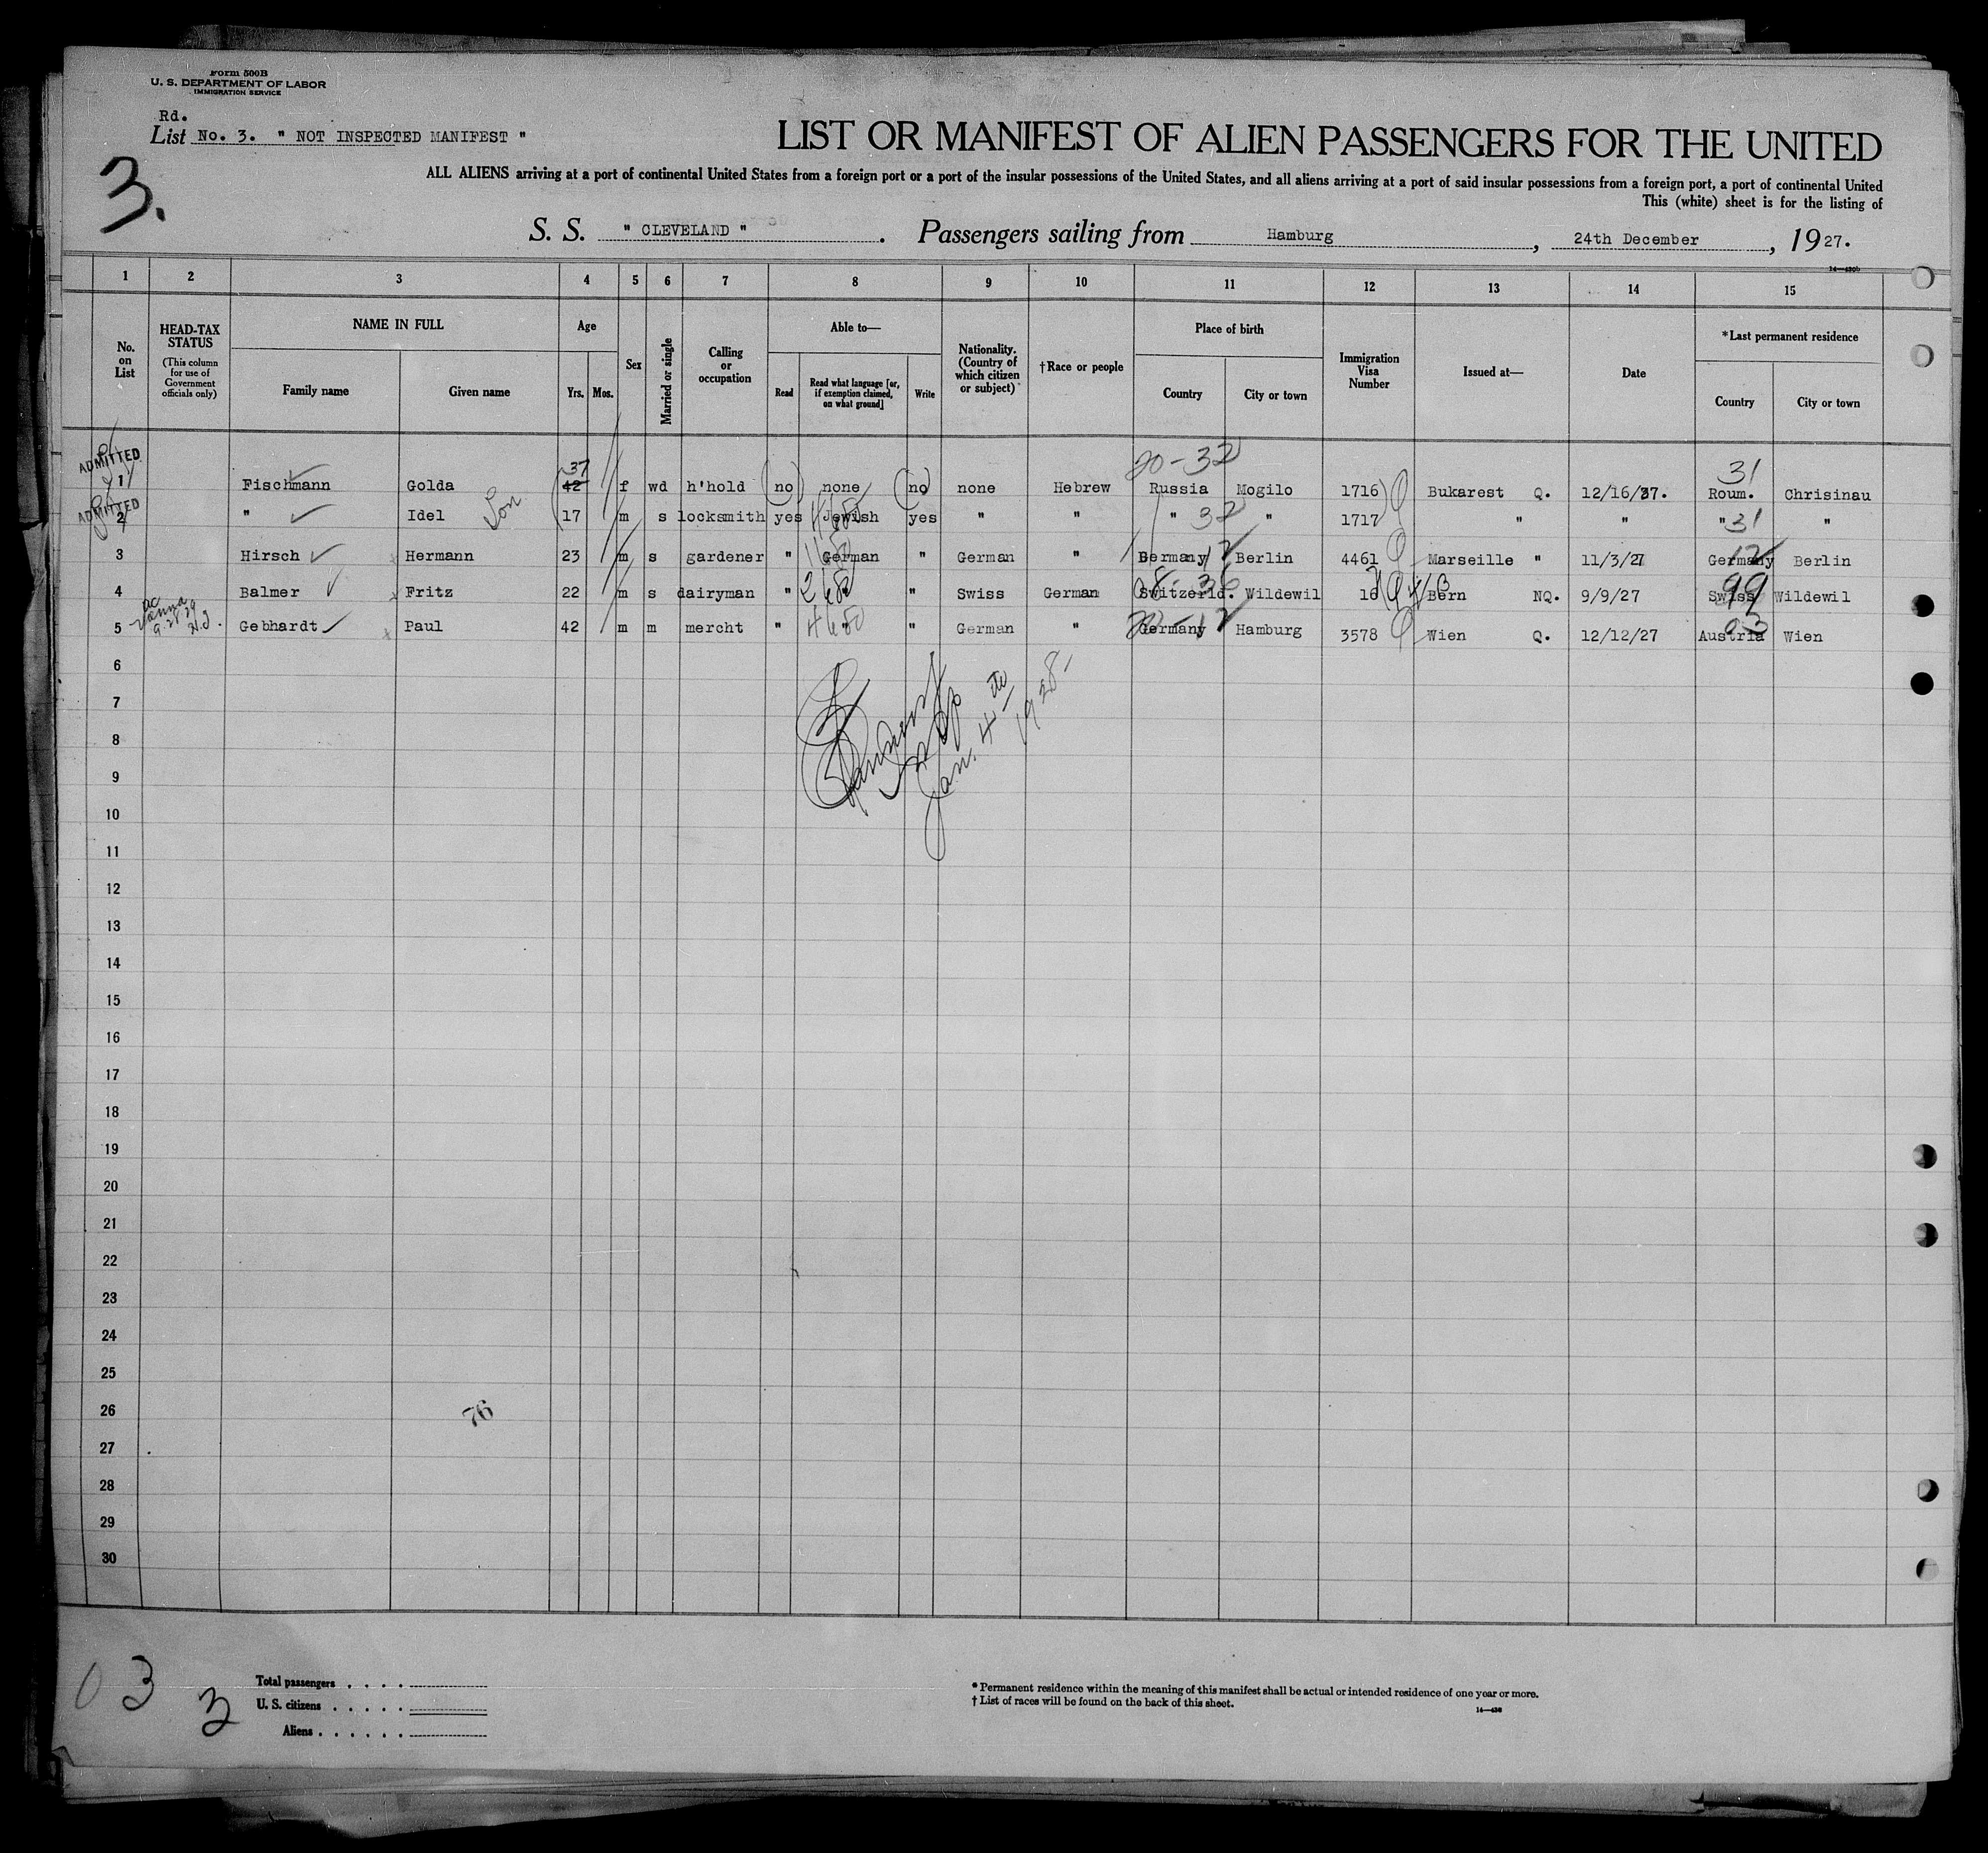 Form 500B
U. S. DEPARTMENT OF LABOR
IMMIGRATION SERVICE
Rd.
List No. 3. " NOT INSPECTED MANIFEST "
3.
LIST OR MANIFEST OF ALIEN PASSENGERS FOR THE UNITED
ALL ALIENS arriving at a port of continental United States from a foreign port or a port of the insular possessions of the United States, and all aliens arriving at a port of said insular possessions from a foreign port, a port of continental United
This (white) sheet is for the listing of
S. S. " CLEVELAND " . Passengers sailing from Hamburg , 24th December , 1927.
1 2 3 4 5 6 7 8 9 10 11 12 13 14 15
No. on List
HEAD-TAX STATUS (This column for use of Government officials only)
NAME IN FULL
Family name Given name
Age
Yrs. Mos.
Sex
Married or single
Calling or occupation
Able to—
Read Read what language [or, if exemption claimed, on what ground] Write
Nationality. (Country of which citizen or subject)
†Race or people
Place of birth
Country City or town
Immigration Visa Number
Issued at—
Date
*Last permanent residence
Country City or town
20-32 31
ADMITTED
37
1 Fischmann Golda 42 f wd h'hold no none no none Hebrew Russia Mogilo 1716 Bukarest Q. 12/16/27. Roum. Chrisinau
ADMITTED
2 " Idel Son 17 m s locksmith yes Jewish yes " " " 32 " 1717 " " " 31 "
3 Hirsch Hermann 23 m s gardener " German " German " Germany 12 Berlin 4461 Marseille " 11/3/27 Germany 12 Berlin
4 Balmer Fritz 22 m s dairyman " " Swiss German Switzerld. Wildewil 16 Bern NQ. 9/9/27 Swiss 99 Wildewil
5 Gebhardt Paul 42 m m mercht " 4680 " German " Germany Hamburg 3578 Wien Q. 12/12/27 Austria 03 Wien
6
7
8
9
Jan. 4th 1928
10
11
12
13
14
15
16
17
18
19
20
21
22
23
24
25
26
76
27
28
29
30
03 3
Total passengers . . . . .
U. S. citizens . . . . .
Aliens . . . . . .
* Permanent residence within the meaning of this manifest shall be actual or intended residence of one year or more.
† List of races will be found on the back of this sheet.